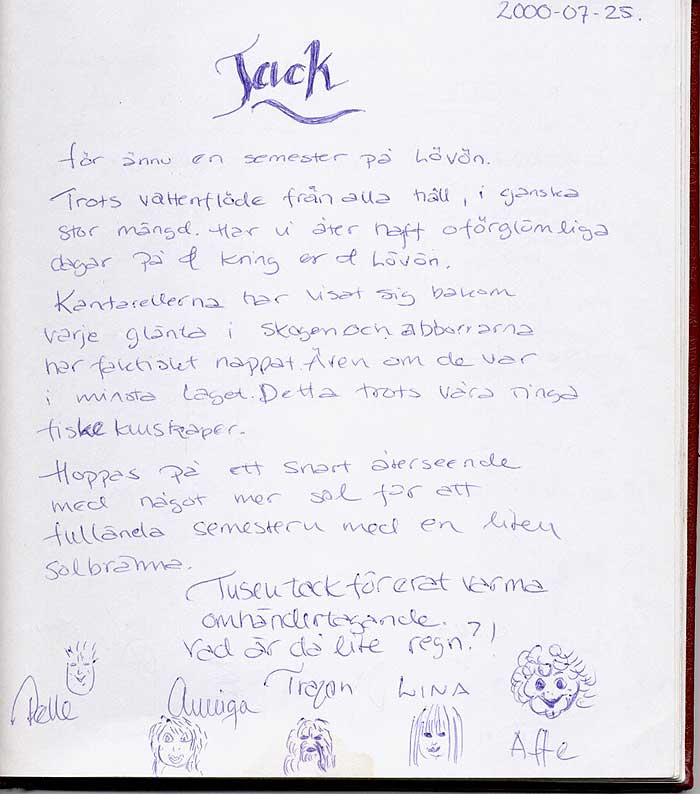 2000-07-25.
Tack
för ännu en semester på Lövön.
Trots vattenflöde från alla håll, i ganska
stor mängd. Har vi åter haft oförglömliga
dagar på & kring er ö Lövön.
Kantarellerna har visat sig bakom
varje glänta i skogen och abborrarna
har faktiskt nappat. Även om de var
i minsta laget. Detta trots våra ringa
fiskekunskaper.
Hoppas på ett snart återseende
med något mer sol för att
fullända semestern med en liten
solbränna.
Tusen tack för erat varma
omhändertagande.
Vad är då lite regn?!
Pelle Anniga Trazan LINA Affe